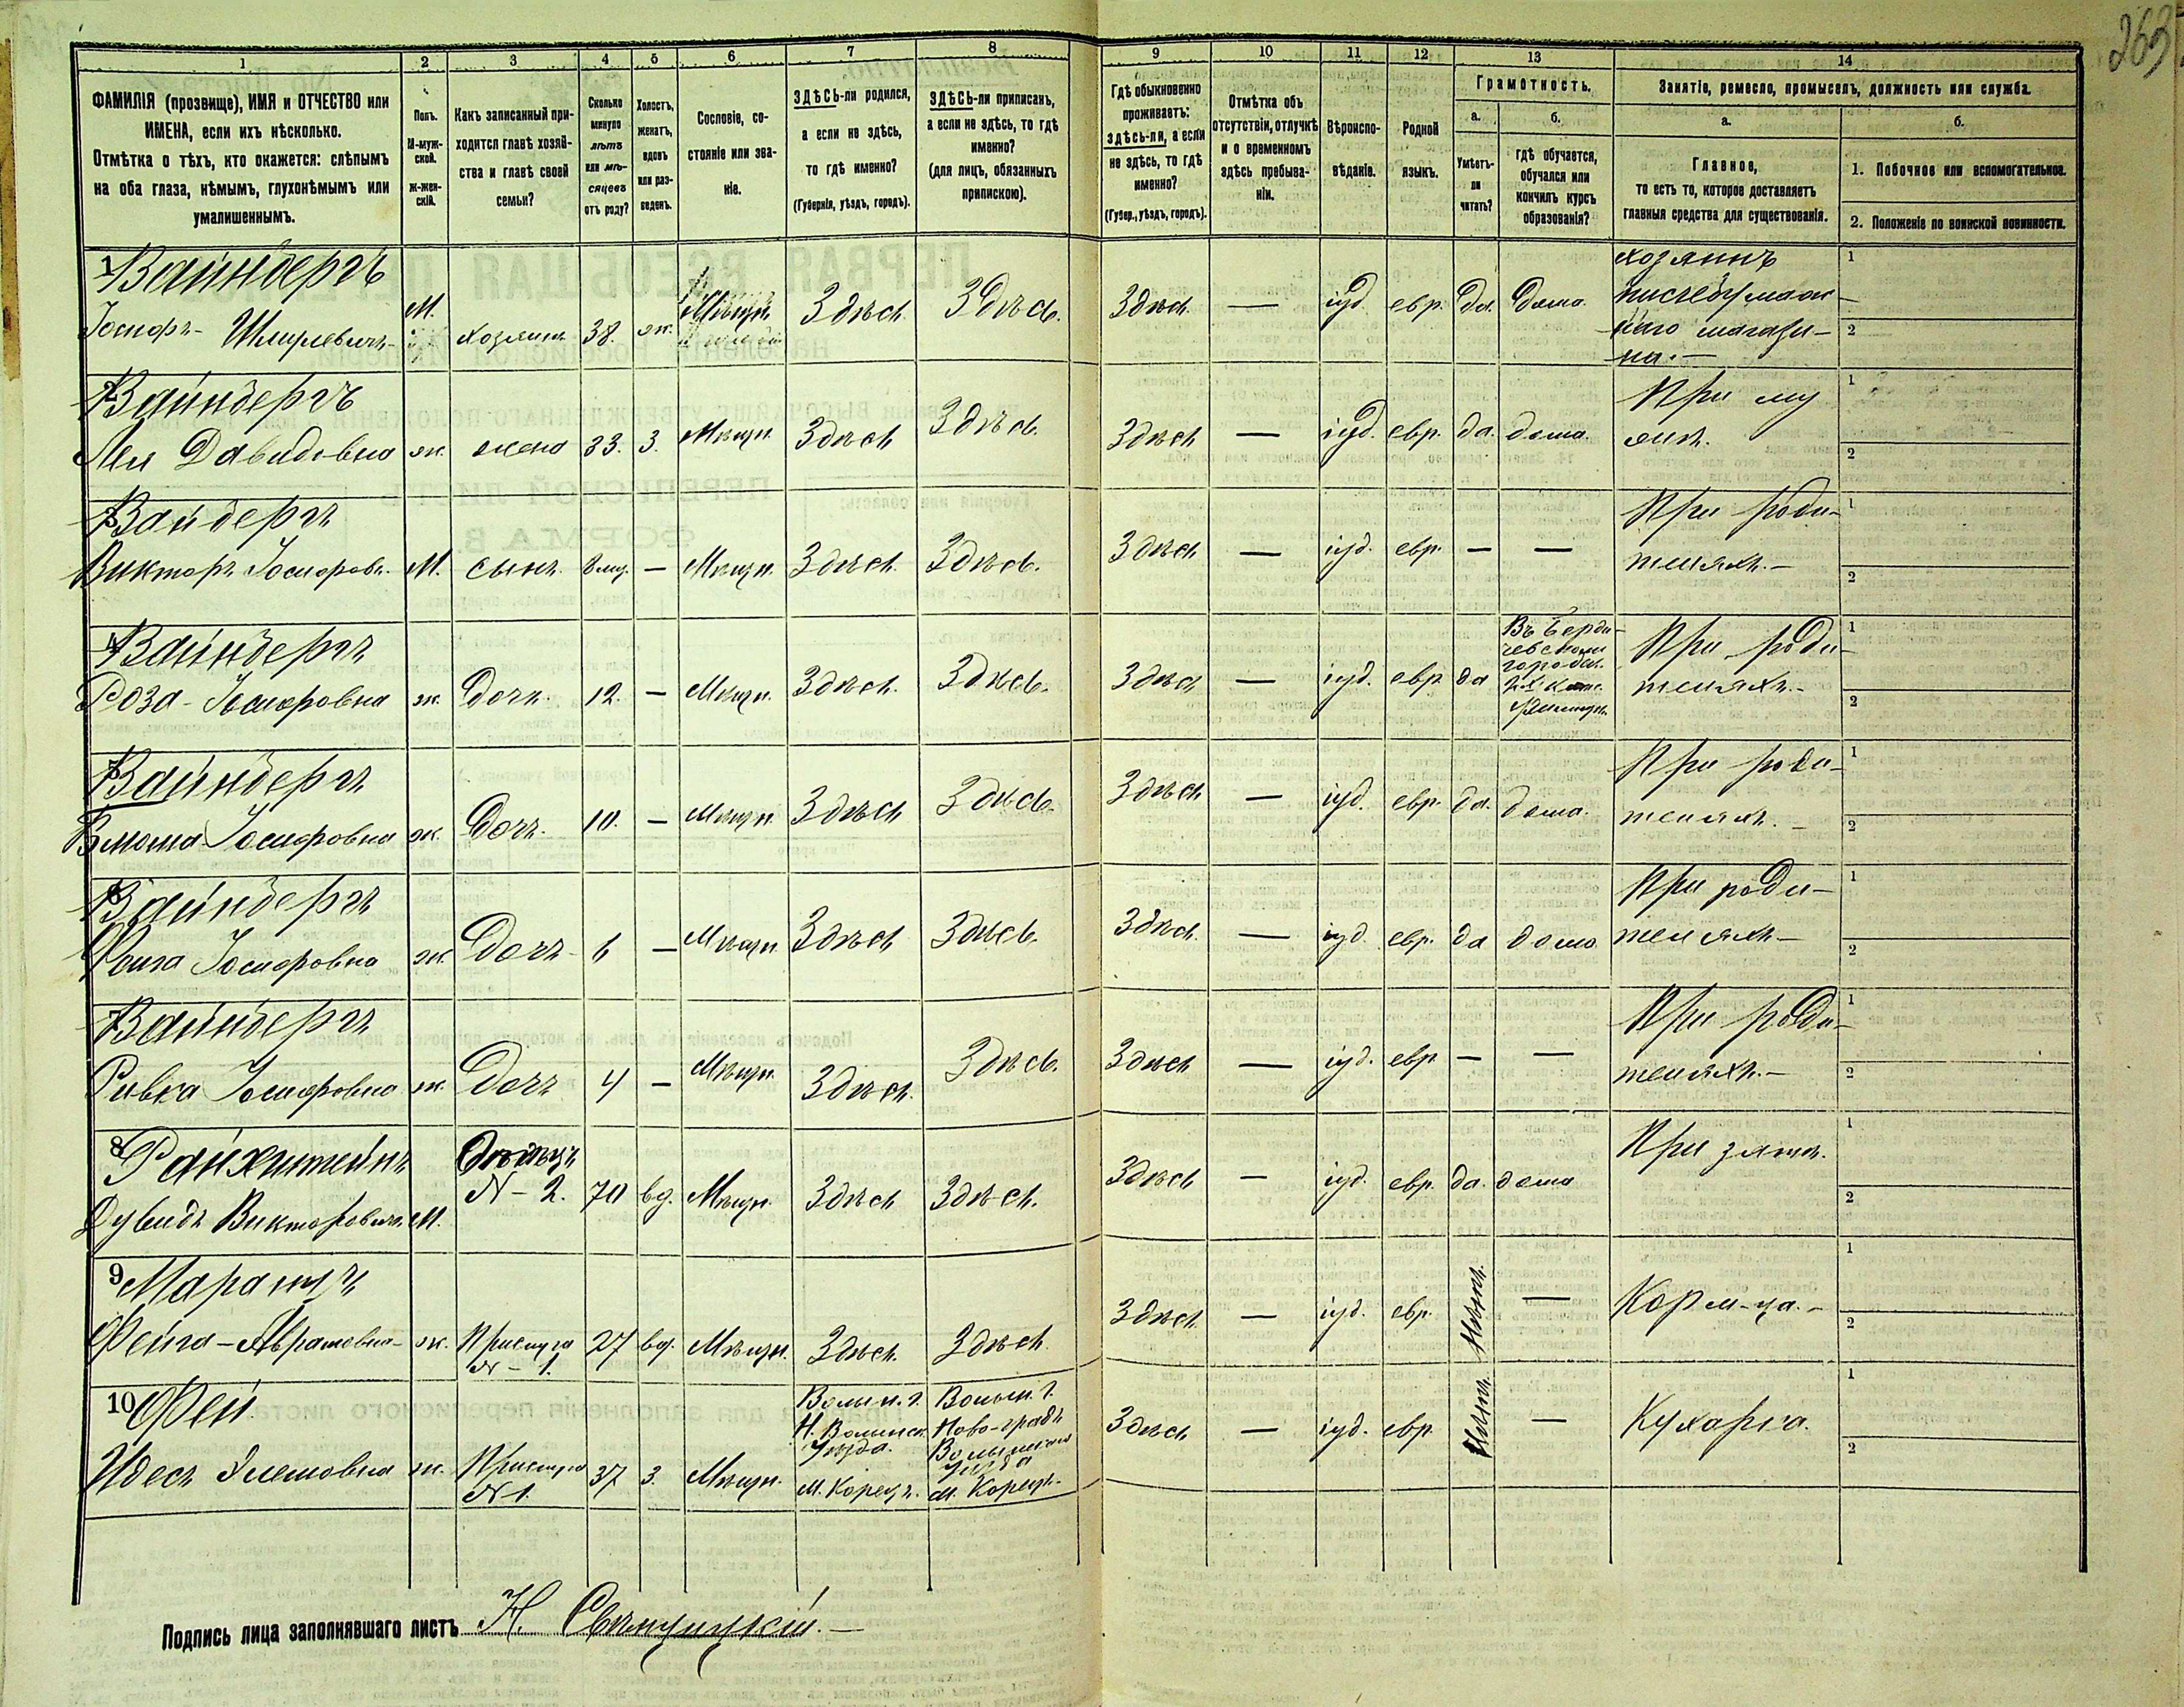 263
1 2 3 4 5 6 7 8 9 10 11 12 13 14
ФАМИЛІЯ (прозвище), ИМЯ и ОТЧЕСТВО или
ИМЕНА, если ихъ нѣсколько.
Отмѣтка о тѣхъ, кто окажется: слѣпымъ
на оба глаза, нѣмымъ, глухонѣмымъ или
умалишеннымъ.
Полъ.
М-муж-
ской.
Ж-жен-
скій.
Какъ записанный при-
ходится главѣ хозяй-
ства и главѣ своей
семьи?
Сколько
минуло
лѣтъ
или мѣ-
сяцевъ
отъ роду?
Холостъ,
женатъ,
вдовъ
или раз-
веденъ.
Сословіе, со-
стояніе или зва-
ніе.
ЗДѢСЬ-ли родился,
а если не здѣсь,
то гдѣ именно?
(Губернія, уѣздъ, городъ).
ЗДѢСЬ-ли приписанъ,
а если не здѣсь, то гдѣ
именно?
(для лицъ, обязанныхъ
припискою).
Гдѣ обыкновенно
проживаетъ:
здѣсь-ли, а если
не здѣсь, то гдѣ
именно?
(Губер., уѣздъ, городъ).
Отмѣтка объ
отсутствіи, отлучкѣ
и о временномъ
здѣсь пребыва-
ніи.
Вѣроиспо-
вѣданіе.
Родной
языкъ.
Грамотность.
а.
Умѣетъ-
ли
читать?
б.
гдѣ обучается,
обучался или
кончилъ курсъ
образованія?
Занятіе, ремесло, промыселъ, должность или служба.
а.
Главное,
то есть то, которое доставляетъ
главныя средства для существованія.
б.
1. Побочное или вспомогательное.
2. Положеніе по воинской повинности.
1 Вайнбергъ
Іосифъ- Шмулевичъ- М. хозяинъ 38. ж. Мѣщ. Здѣсь Здѣсь. Здѣсь. — іуд. евр. да. дома.
хозяинъ
писчебумаж-
наго магази-
на. —
1
2
2 Вайнбергъ
Лея Давидовна ж. жена 33. З. Мѣщ. Здѣсь Здѣсь. Здѣсь — іуд. евр. да. дома.
При му
жѣ.
1
2
3 Вайбергъ
Викторъ Іосифов. М. сынъ. 8 мц. — Мѣщ. Здѣсь. Здѣсь. Здѣсь — іуд. евр. — —
При роди-
теляхъ. —
1
2
4 Вайнбергъ
Роза - Іосифовна ж. Дочь. 12. — Мѣщ. Здѣсь. Здѣсь. Здѣсь — іуд. евр. да
Въ Берди-
чевскомъ
городск.
2-х клас.
При роди-
теляхъ. -
1
2
5 Вайнбергъ
Іосифовна ж. Дочь. 10. — Мѣщ. Здѣсь Здѣсь. Здѣсь — іуд. евр. да. дома.
При роди-
теляхъ. —
1
2
6 Вайнбергъ
Іосифовна ж. Дочь 6 — Мѣщ. Здѣсь Здѣсь. Здѣсь. — іуд. евр. да дома
При роди-
теляхъ —
1
2
7 Вайнбергъ
Ривка Іосифовна ж. Дочь 4 — Мѣщ. Здѣсь. Здѣсь. Здѣсь — іуд. евр. — —
При роди-
теляхъ. —
1
2
8 Райхштейнъ
Дувидъ Викторовичъ М. Отецъ
N - 2. 70 вд. Мѣщ. Здѣсь Здѣсь. Здѣсь — іуд. евр. да. дома
При зятѣ.
1
2
9 Маранцъ
Фейга - Абрамовна - ж. Прислуга
N - 1. 27 вд. Мѣщ. Здѣсь. Здѣсь Здѣсь. — іуд. евр. Неграм. —
Корм-ца. -
1
2
10 Фей
Идесь ж. Прислуга
N 1. 37 З. Мѣщ.
Волын. г.
Н. Волынск.
Уѣзда.
М. Корецъ.
Волын. г.
Ново-градъ
Волынскаго
уѣзда
м. Корецъ.
Здѣсь — іуд. евр. Неграм. — Кухарка.
1
2
Подпись лица заполнявшаго листъ Н.